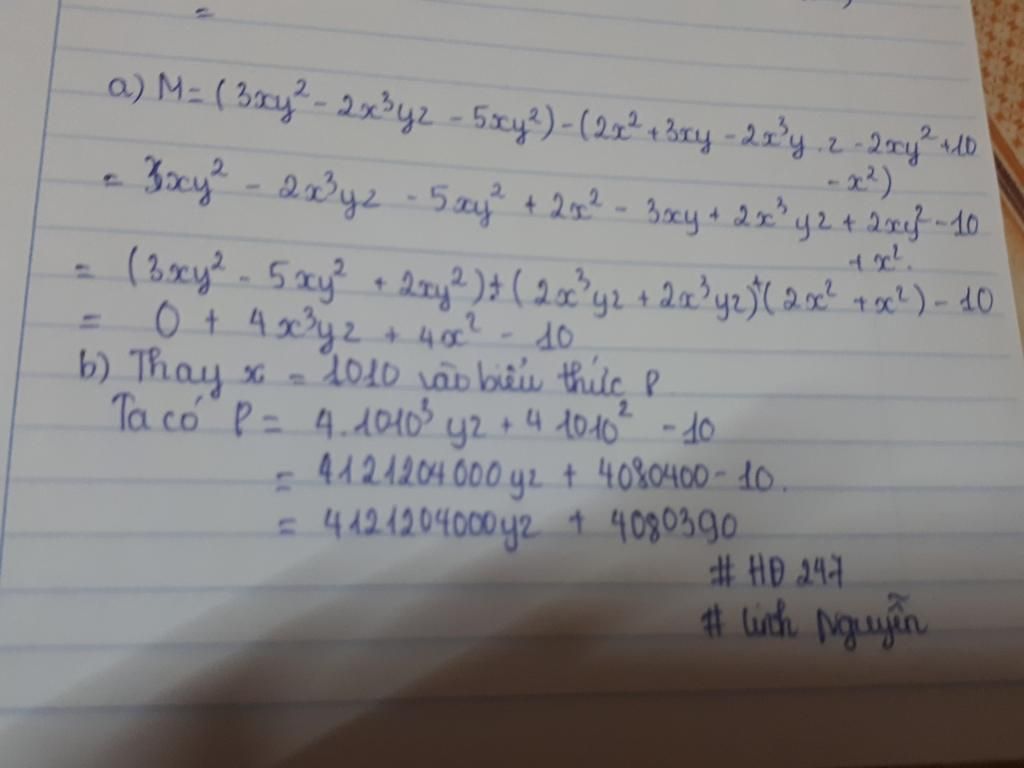 =
a) M = (3xy² - 2x³yz - 5xy²) - (2x² + 3xy - 2x³y.z - 2xy² + 10
- x²)
= 3xy² - 2x³yz - 5xy² + 2x² - 3xy + 2x³yz + 2xy² - 10
+ x².
= (3xy² - 5xy² + 2xy²) + (2x³yz + 2x³yz) + (2x² + x²) - 10
= 0 + 4x³yz + 4x² - 10
b) Thay x = 1010 vào biểu thức P
Ta có P = 4.1010³ yz + 4 1010² - 10
= 4121204000yz + 4080400 - 10.
= 4121204000yz + 4080390
# HĐ 247
# Linh Nguyễn